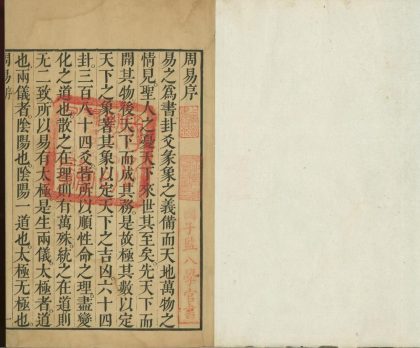 周易序
易之爲書卦爻彖象之義備而天地萬物之
情見聖人之憂天下來世其至矣先天下而
開其物後天下而成其務是故極其數以定
天下之象著其象以定天下之吉凶六十四
卦三百八十四爻皆所以順性命之理盡變
化之道也散之在理則有萬殊統之在道則
无二致所以易有太極是生兩儀太極者道
也兩儀者陰陽也陰陽一道也太極无極也
周易序
一
國子監八學官書